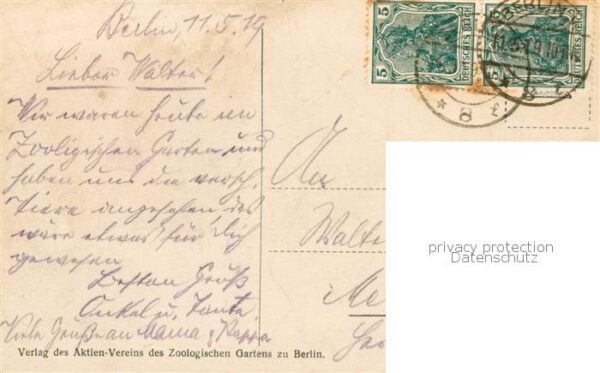 Berlin, 11.5.19
Lieber Walter!
Wir waren heute im
Zooligischen Garten und
haben uns die versch.
Tiere angesehen das
wäre etwas für Dich
gewesen
Besten Gruß
Onkel u. Tante,
Viele Grüße an Mama & Pappa
Verlag des Aktien-Vereins des Zoologischen Gartens zu Berlin.
5
DEUTSCHES REICH
5
DEUTSCHES REICH
BERLIN
* 8
An
Walte
Me
privacy protection
Datenschutz